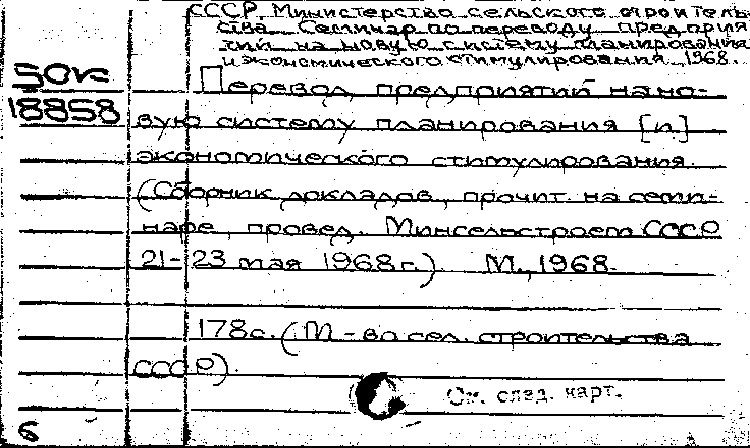 СССР. Министерство сельского строитель-
ства. Семинар по переводу предприя-
тий на новую систему планирования
и экономического стимулирования, 1968.
50к
18858
Перевод предприятий на но-
вую систему планирования [и]
экономического стимулирования.
(Сборник докладов, прочит. на семи-
наре, провед. Минсельстроем СССР
21-23 мая 1968г.) М., 1968.
178с. (М-во сел. строительства
СССР)
См. след. карт.
6